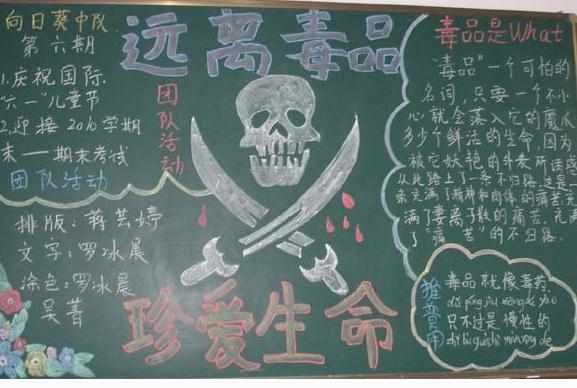 向日葵中队
第六期
远离毒品
1.庆祝国际
六一儿童节
2.迎接2016学期
末——期末考试
团队活动
团队活动
排版：蒋芸婷
文字：罗冰晨
涂色：罗冰晨
吴菁
珍爱生命
毒品是What
"毒品"一个可怕的
名词，只要一个不小
心就会落入它的魔爪
多少个鲜活的生命，因为
被它妖艳的外表所诱惑
从此踏上了一条不归路。这是一
条充满了精神和肉体的痛苦，充
满了妻离子散的痛苦，充满
了"痛苦"的不归路。
推普周
毒品就像毒药
dú pǐn jiù xiàng dú yào
只不过是慢性的
zhǐ bú guò shì màn xìng de